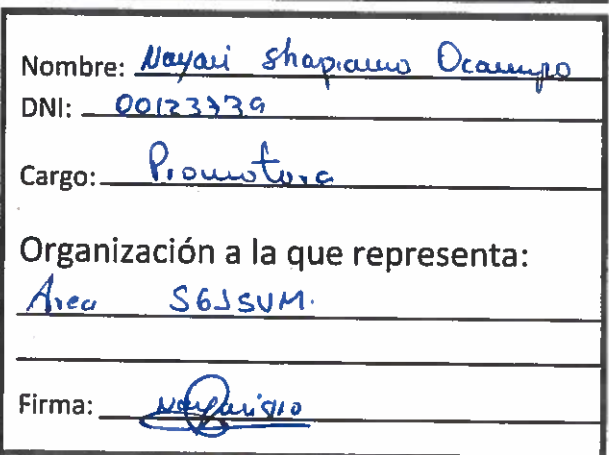 Nombre: Nayari Shapiama Ocampo
DNI: 00123739
Cargo: Promotora
Organización a la que representa:
Area SGJSVM.
Firma: